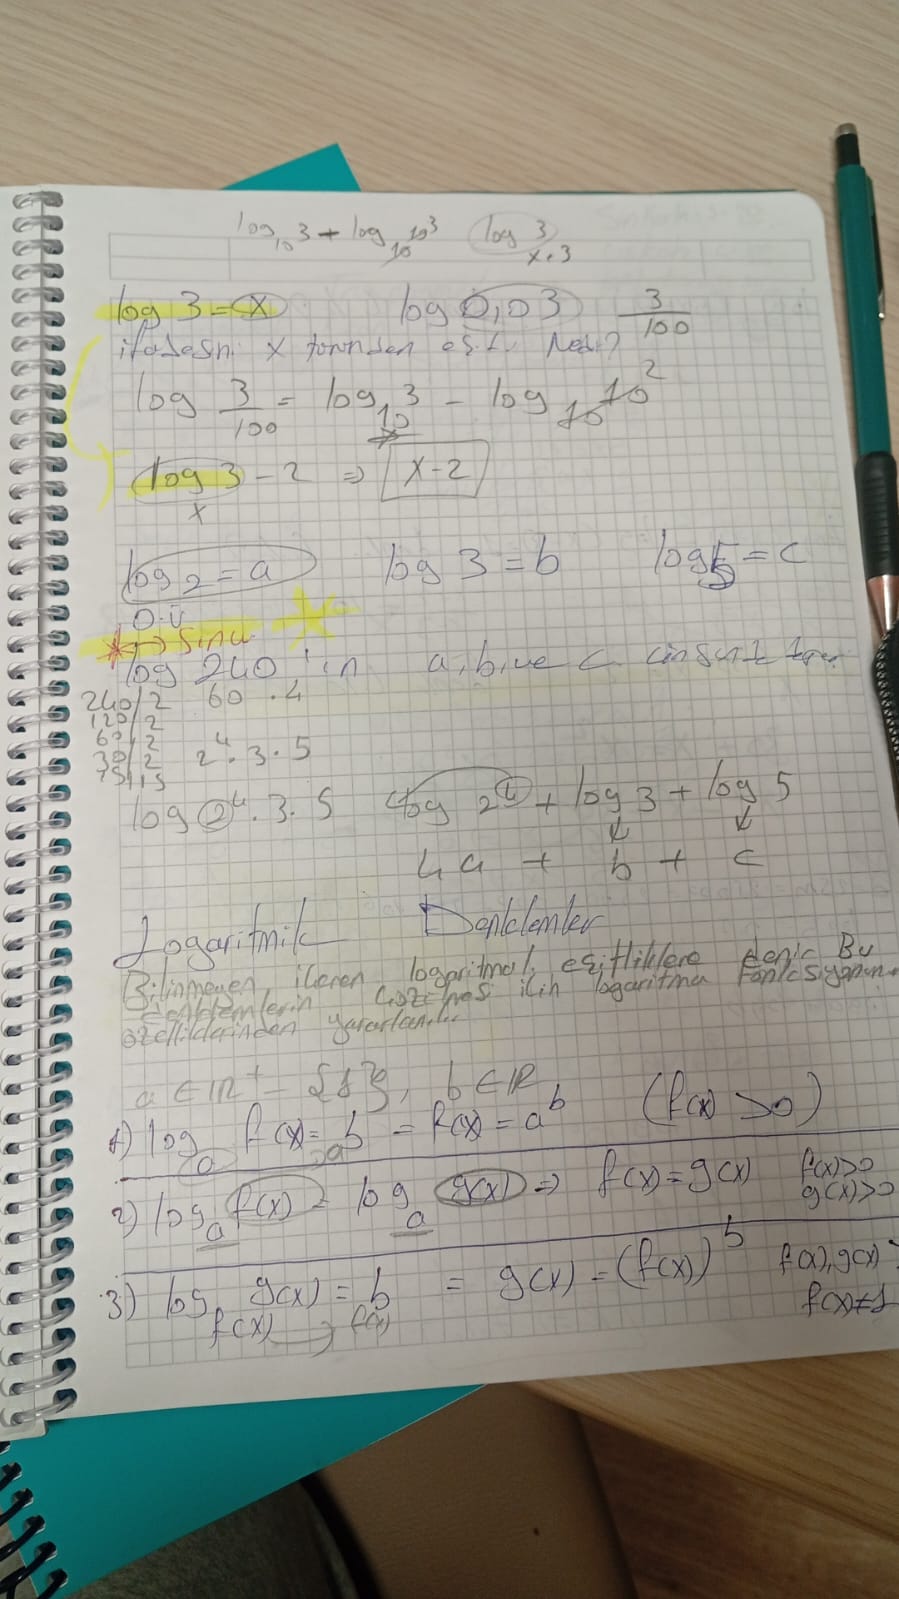 log₁₀3 + log₁₀10³ log 3
x+3
log 3 = x log 0,03 3/100
ifadesini x
log 3/100 = log₁₀3 - log₁₀10²
log 3 - 2 ⇒ x-2
x
log 2 = a log 3 = b log 5 = c
Ö.Ü
* → Sınav
log 240'ın a,b,ve c cinsinden
240/2 60.4
120/2
60/2 2⁴.3.5
30/2
log 2⁴.3.5 log 2⁴ + log 3 + log 5
4a + b + c
Logaritmik Denklemler
Bilinmeyen, içeren logaritmalı eşitliklere denir Bu
denklemlerin için logaritma Fonksiyonun
özelliklerinden yararlanılır
a ∈ IR⁺ - {1}, b ∈ IR
1) logₐ f(x) = b = f(x) = aᵇ (f(x) >0)
2) logₐ f(x) = logₐ g(x) ⇒ f(x) = g(x) f(x)>0
g(x)>0
3) log g(x) = b = g(x) = (f(x))ᵇ f(x),g(x)
f(x) f(x) f(x)≠1